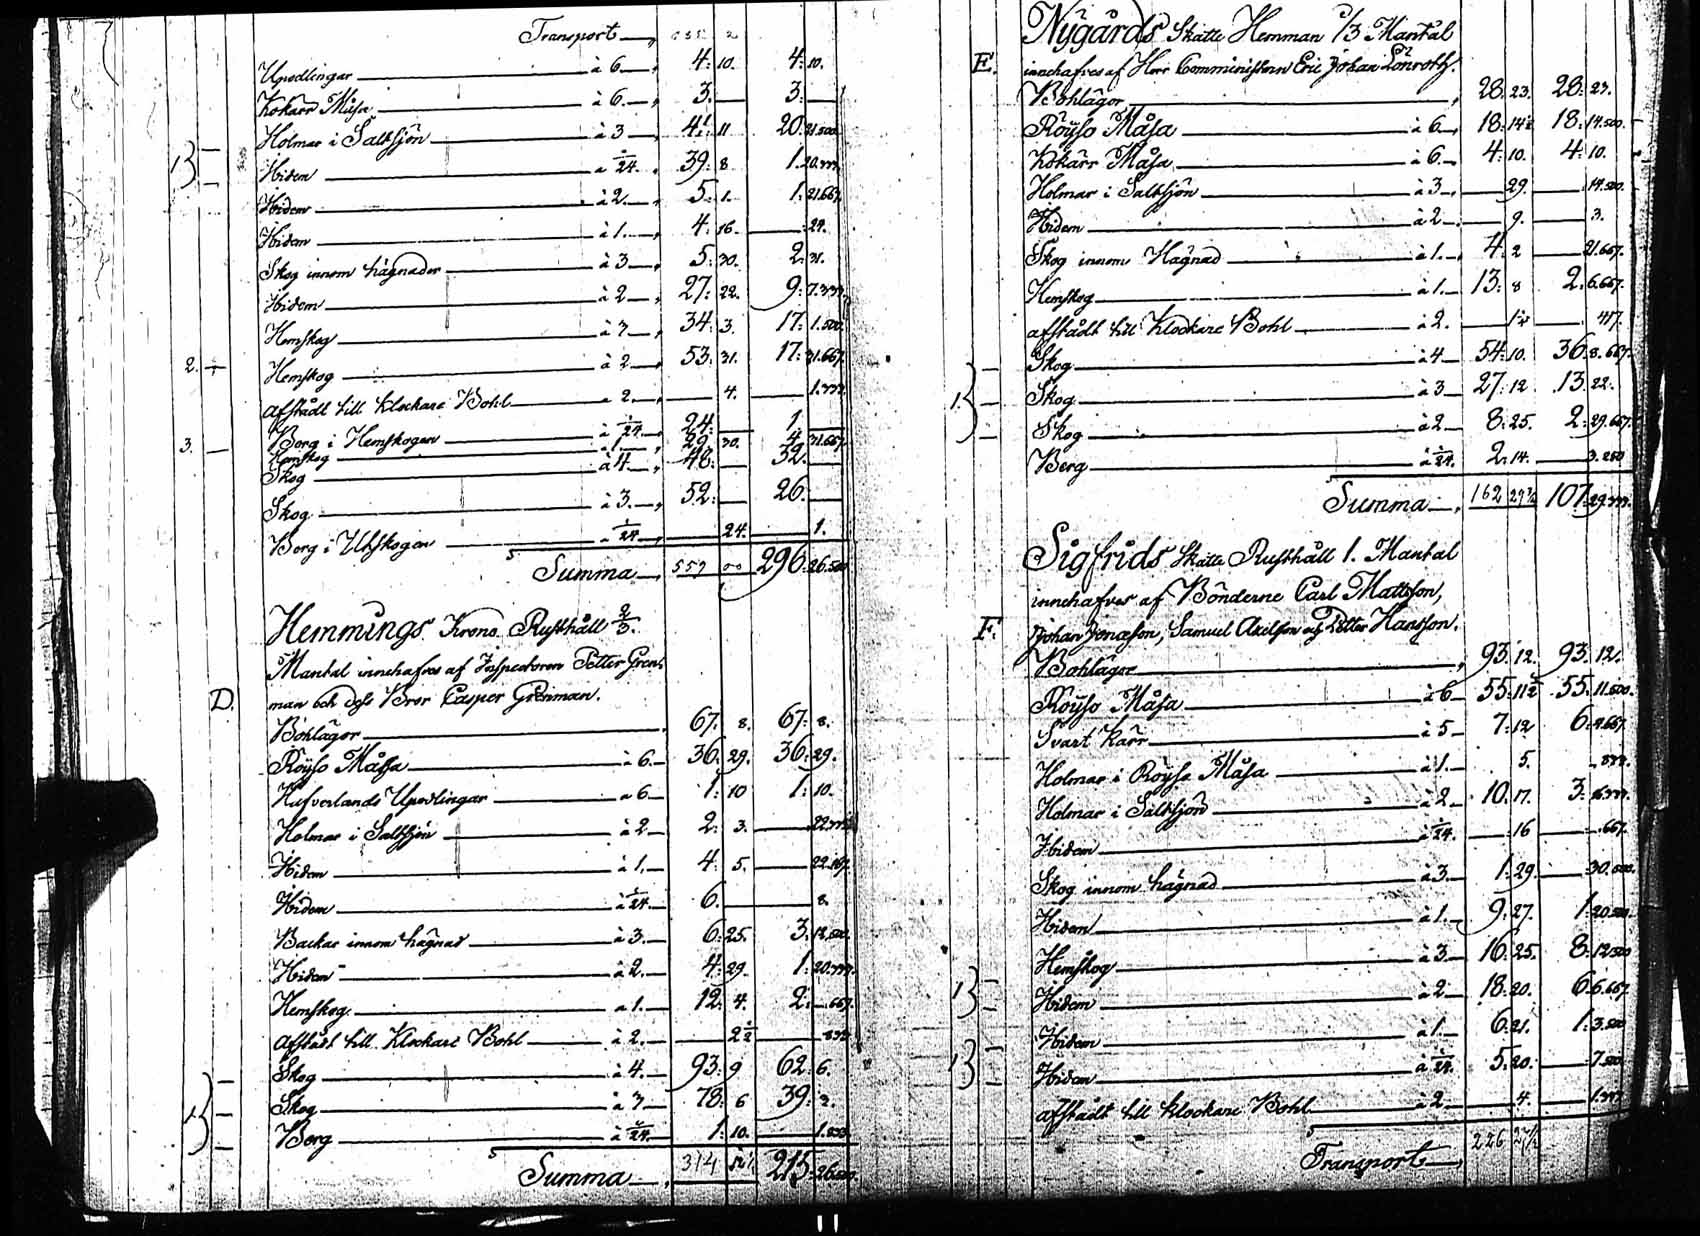 Transport
Upodlingar à 6 4. 10. 4. 10.
Kokärr Måsa à 6. 3. 3.
Holmar i Saltsjön à 3 41. 11 20. 21.500
B
Hidem à 1/24. 39. 8 1. 20.333
Hidem à 2. 5. 1. 1. 21.667.
Hidem à 1. 4. 16. 24.
Skog innom hägnader à 3 5. 30. 2. 31.
Hidem à 2 27. 22. 9. 7.333
Hemskog à 3 34. 3. 17. 1.500
2. Hemskog à 2 53. 31. 17. 31.667
afstådt till Klockare Bohl à 2. 4. 1.333
Berg i Hemskogen à 1/24 24. 1.
3. Hemskog à 1 29. 30. 4. 31.667
Skog à 4. 48. 32.
Skog à 3. 52. 26.
Berg i Utskogen à 1/24 24. 1.
Summa 559 00 296. 26.500
Hemmings Krono Rusthåll 2/3.
Mantal innehafves af Inspectoren Petter Gren-
D. man och dess Bror Casper Grenman.
Bohlägor 67. 8. 67. 8.
Röyso Måssa à 6. 36. 29. 36. 29.
Hafverlands Upodlingar à 6 1. 10 1. 10.
Holmar i Saltsjön à 2 2. 3. 22.333
Hidem à 1. 4. 5. 22.167
Hidem à 1/24. 6. 8.
Backar innom hägnad à 3. 6. 25. 3. 12.500
Hidem à 2. 4. 29. 1. 20.333
Hemskog à 1. 12. 4. 2. .667
afstådt till Klockare Bohl à 2. 2 1/2 .833
Skog à 4. 93. 9 62. 6.
B
Skog à 3 78. 6 39. 3.
Berg à 1/24. 1. 10. 1.833
Summa 314 215. 26.500
Nygårds Skatte Hemman 1/3 Mantal
E. innehafves af Herr Comministern Eric Johan Lönroth.
Bohlägor 28. 23. 28. 23.
Röyso Måsa à 6 18. 14½ 18. 14.500
Kokärr Måsa à 6. 4. 10. 4. 10.
Holmar i Saltsjön à 3 29. 14.500
Hidem à 2 9. 3.
Skog innom Hägnad à 1. 4. 2 21.667.
Hemskog à 1. 13. 8 2. 6.667
afstådt till Klockare Bohl à 2. 1¼ 417.
Skog à 4 54. 10. 36. 8.667
B
Skog à 3 27. 12 13. 22.
Skog à 2 8. 25. 2. 29.667
Berg à 1/24. 2. 14. 3.250
Summa 162 29¾ 107. 29.333
Sigfrids Skatte Rusthåll 1. Mantal
innehafves af Bönderne Carl Mattsson,
F. Johan Jonasson, Samuel Axelsson och Petter Hansson.
Bohlägor 93. 12. 93. 12.
Röyso Måsa à 6 55. 11½ 55. 11.500
Svart Kärr à 5 7. 12 6. 4.667
Holmar i Röyso Måsa à 1. 5. .833
Holmar i Saltsjön à 2 10. 17. 3. 16.333
Hidem à 1/24. 16 .667
Skog innom hägnad à 3. 1. 29. 30.500
Hidem à 1. 9. 27. 1. 20.500
Hemskog à 3 16. 25. 8. 12.500
B
Hidem à 2 18. 20. 6. 6.667
Hidem à 1. 6. 21. 1. 3.500
B
Hidem à 1/24. 5. 20. 7.500
afstådt till Klockare Bohl à 2 4. 1.333
Transport 226 27½